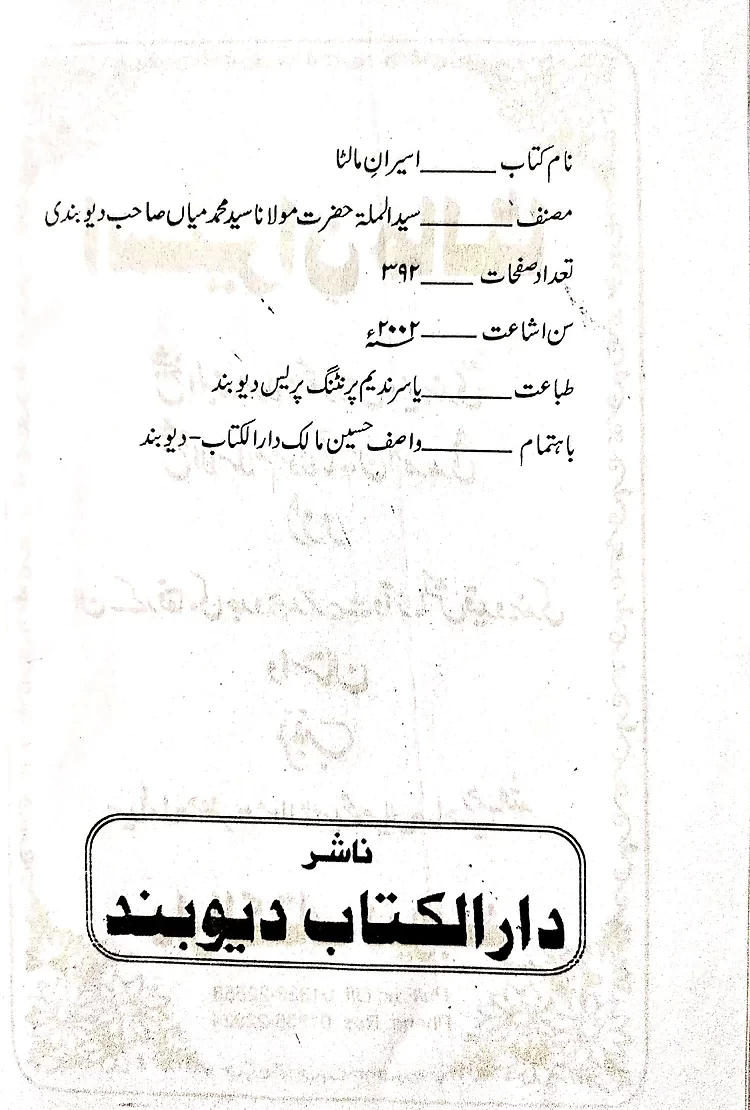 نام کتاب ــــــــ اسیرانِ مالٹا
مصنف ــــــــ سید الملۃ حضرت مولانا سید محمد میاں صاحب دیوبندی
تعداد صفحات ــــــــ ۳۹۲
سن اشاعت ــــــــ ۲۰۰۲ء
طباعت ــــــــ یاسر ندیم پرنٹنگ پریس دیوبند
باہتمام ــــــــ واصف حسین مالک دارالکتاب - دیوبند
ناشر
دارالکتاب دیوبند